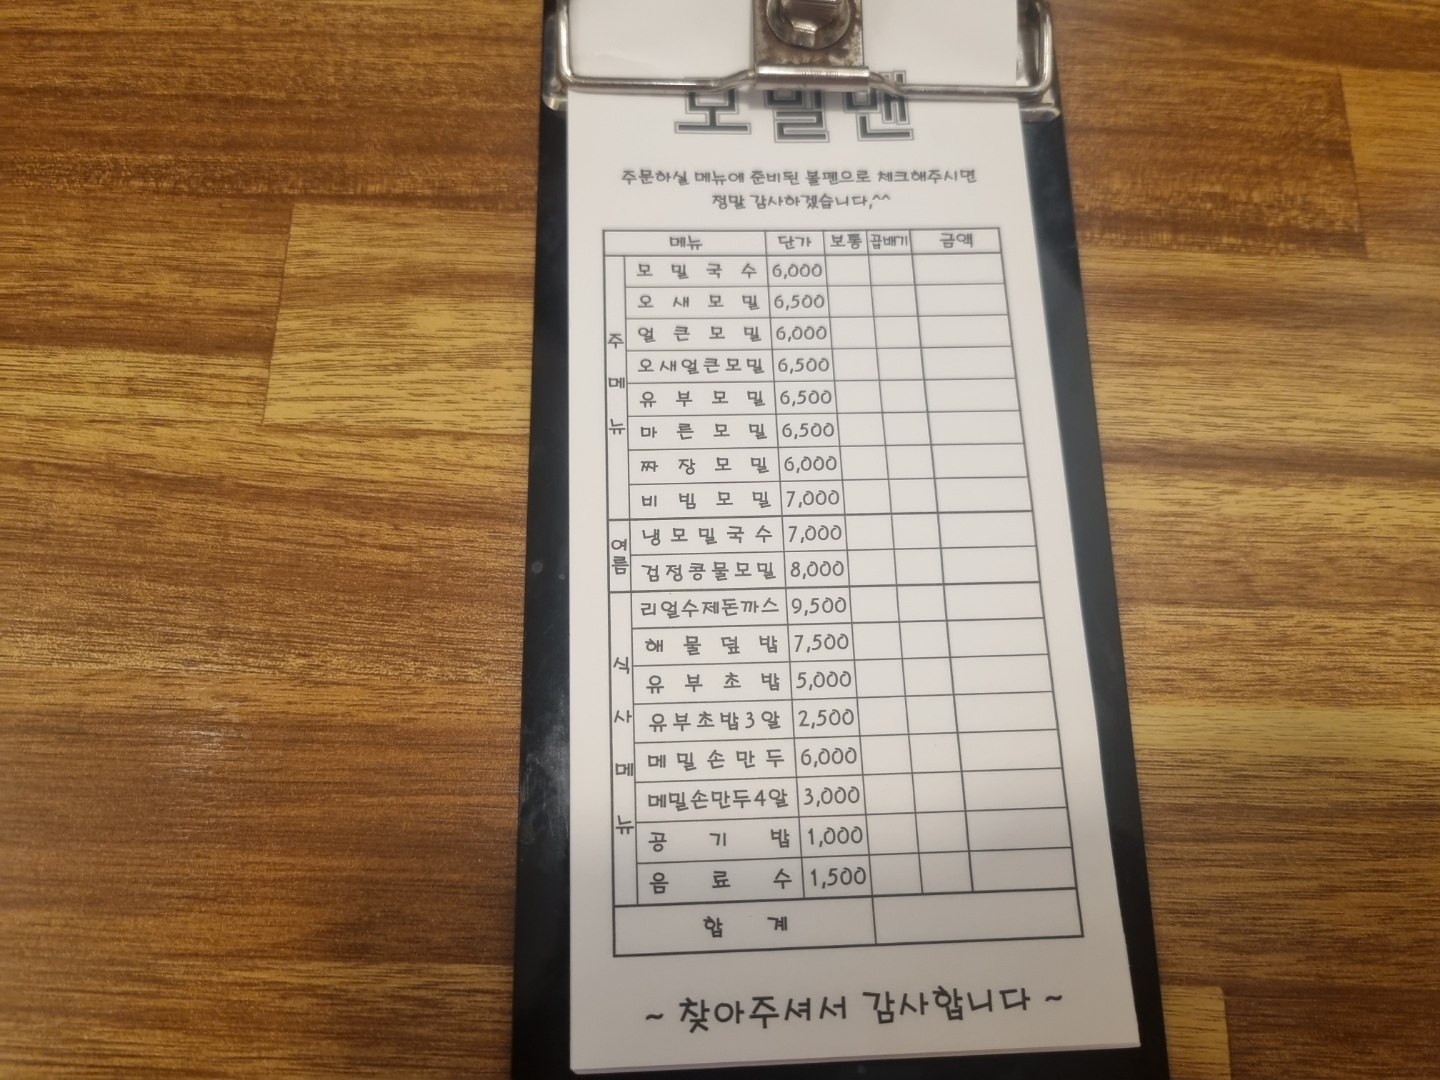 모밀맨
주문하실 메뉴에 준비된 볼펜으로 체크해주시면
정말 감사하겠습니다,^^
메뉴 단가 보통 곱배기 금액
주메뉴
모밀국수 6,000
오새모밀 6,500
얼큰모밀 6,000
오새얼큰모밀 6,500
유부모밀 6,500
마른모밀 6,500
짜장모밀 6,000
비빔모밀 7,000
여름
냉모밀국수 7,000
검정콩물모밀 8,000
식사메뉴
리얼수제돈까스 9,500
해물덮밥 7,500
유부초밥 5,000
유부초밥3알 2,500
메밀손만두 6,000
메밀손만두4알 3,000
공기밥 1,000
음료수 1,500
합계
~ 찾아주셔서 감사합니다 ~